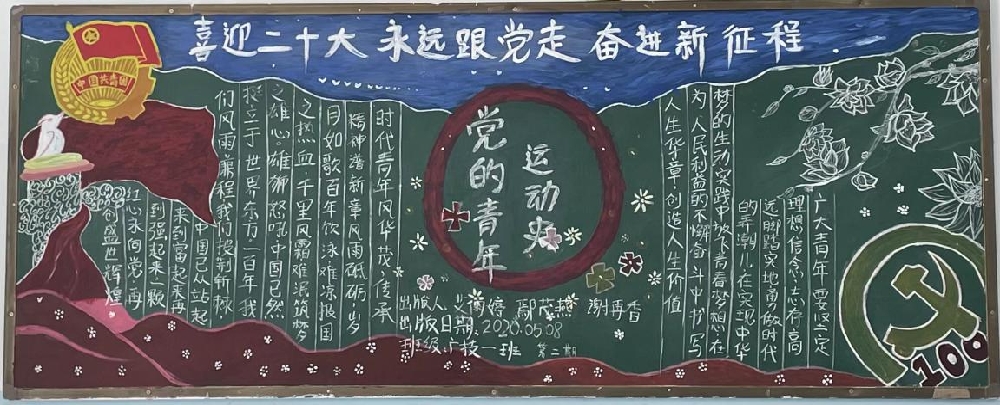 喜迎二十大 永远跟党走 奋进新征程
中国共青团
党的青年
运动史
时代青年风华茂,传承
精神谱新章风雨砥砺岁
月如歌百年饮泳难凉报国
之热血,千里风霜难泯筑梦
之雄心。雄狮怒吼中国已然
挺立于世界东方。一百年我
们风雨兼程我们披荆斩棘
中国已从站起
来到富起来再
到强起来一颗
红心永向党再
创盛世辉煌
广大青年要坚定
理想信念志存高
远脚踏实地勇做时代
的弄潮儿在实现中华
梦的生动实践中放飞青春梦想在
为人民利益的不懈奋斗中书写
人生华章,创造人生价值
出版人: 谢再香
出版日期:2020.05.08
班级:广技一班 第二期
100